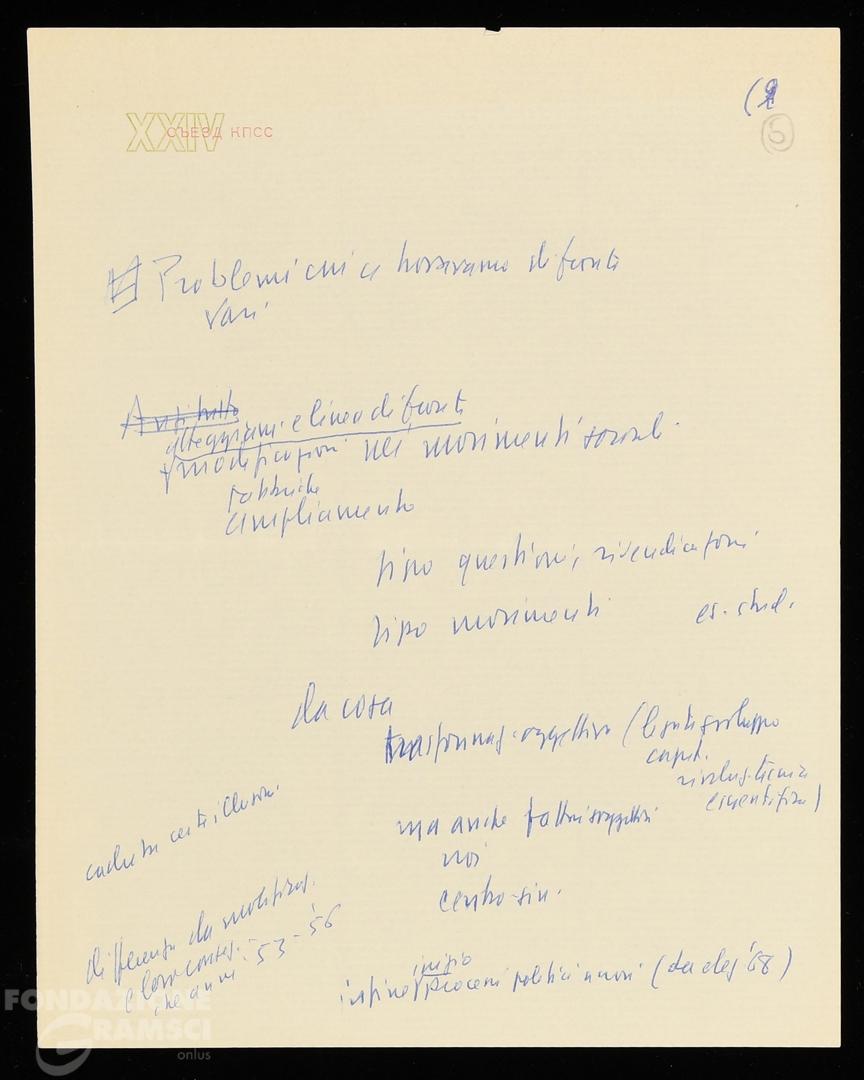 (2
5
XXIV СЪЕЗД КПСС
Problemi cui ci trovavamo di fronte
vari
Anzitutto
atteggiam. e linea di fronte
modificazioni nei movimenti sociali
fabbriche
ampliamento
tipo questioni, rivendicazioni
tipo movimenti es. stud.
da cosa
trasformaz. oggettiva (legate sviluppo
capit.
rivoluz. tecnica
scientifica)
caduta certe illusioni
ma anche fattori soggettivi
noi
centro-sin.
differenza da
e loro
che anni '53-'56
inizio
infine processi politici nuovi (da elez '68)
FONDAZIONE
GRAMSCI
onlus